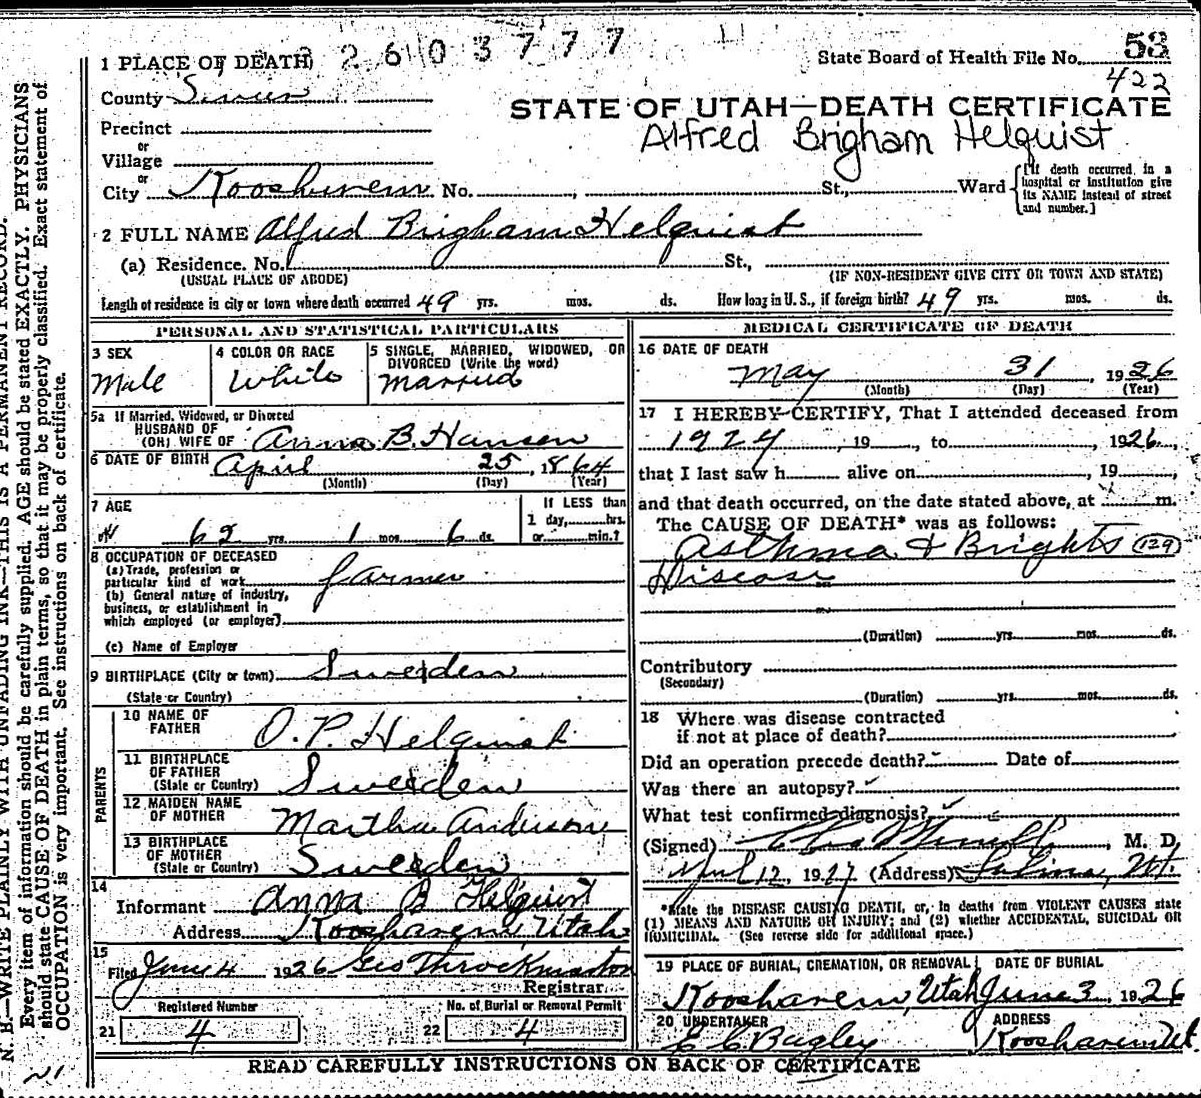 1 PLACE OF DEATH 2603777
State Board of Health File No. 53
422
County Sevier
STATE OF UTAH—DEATH CERTIFICATE
Precinct
Alfred Brigham Helquist
or
Village
or
City Koosharem No. , St., Ward
[If death occurred in a
hospital or institution give
its NAME instead of street
and number.]
2 FULL NAME Alfred Brigham Helquist
(a) Residence. No. St.,
(USUAL PLACE OF ABODE) (IF NON-RESIDENT GIVE CITY OR TOWN AND STATE)
Length of residence in city or town where death occurred 49 yrs. mos. ds. How long in U. S., if foreign birth? 49 yrs. mos. ds.
PERSONAL AND STATISTICAL PARTICULARS
3 SEX
Male
4 COLOR OR RACE
White
5 SINGLE, MARRIED, WIDOWED, OR
DIVORCED (Write the word)
Married
5a If Married, Widowed, or Divorced
HUSBAND OF
(OR) WIFE OF Anna B. Hansen
6 DATE OF BIRTH April 25, 1864
(Month) (Day) (Year)
7 AGE
62 yrs. 1 mos. 6 ds.
If LESS than
1 day, hrs.
or min.?
8 OCCUPATION OF DECEASED
(a) Trade, profession or
particular kind of work farmer
(b) General nature of industry,
business, or establishment in
which employed (or employer)
(c) Name of Employer
9 BIRTHPLACE (City or town) Sweden
(State or Country)
PARENTS
10 NAME OF
FATHER O. P. Helquist
11 BIRTHPLACE
OF FATHER
(State or Country) Sweden
12 MAIDEN NAME
OF MOTHER Martha Anderson
13 BIRTHPLACE
OF MOTHER
(State or Country) Sweden
14
Informant Anna B Helquist
Address Koosharem, Utah
15
Filed June 4 1926 Geo Throckmorton
Registrar.
Registered Number
21 4
No. of Burial or Removal Permit
22 4
MEDICAL CERTIFICATE OF DEATH
16 DATE OF DEATH
May 31, 1926
(Month) (Day) (Year)
17 I HEREBY CERTIFY, That I attended deceased from
1924, 19 , to , 1926,
that I last saw h alive on , 19
and that death occurred, on the date stated above, at m.
The CAUSE OF DEATH* was as follows:
Asthma & Brights 129
Disease
(Duration) yrs. mos. ds.
Contributory
(Secondary)
(Duration) yrs. mos. ds.
18 Where was disease contracted
if not at place of death?
Did an operation precede death? Date of
Was there an autopsy?
What test confirmed diagnosis?
(Signed) , M. D.
April 12, 1927 (Address) Salina, Ut.
*State the DISEASE CAUSING DEATH, or, in deaths from VIOLENT CAUSES state
(1) MEANS AND NATURE OF INJURY; and (2) whether ACCIDENTAL, SUICIDAL OR
HOMICIDAL. (See reverse side for additional space.)
19 PLACE OF BURIAL, CREMATION, OR REMOVAL DATE OF BURIAL
Koosharem, Utah June 3, 1926
20 UNDERTAKER ADDRESS
E C Bagley Koosharem Ut.
READ CAREFULLY INSTRUCTIONS ON BACK OF CERTIFICATE
N. B.—WRITE PLAINLY WITH UNFADING INK—THIS IS A PERMANENT RECORD.
Every item of information should be carefully supplied. AGE should be stated EXACTLY. PHYSICIANS
should state CAUSE OF DEATH in plain terms, so that it may be properly classified. Exact statement of
OCCUPATION is very important. See instructions on back of certificate.